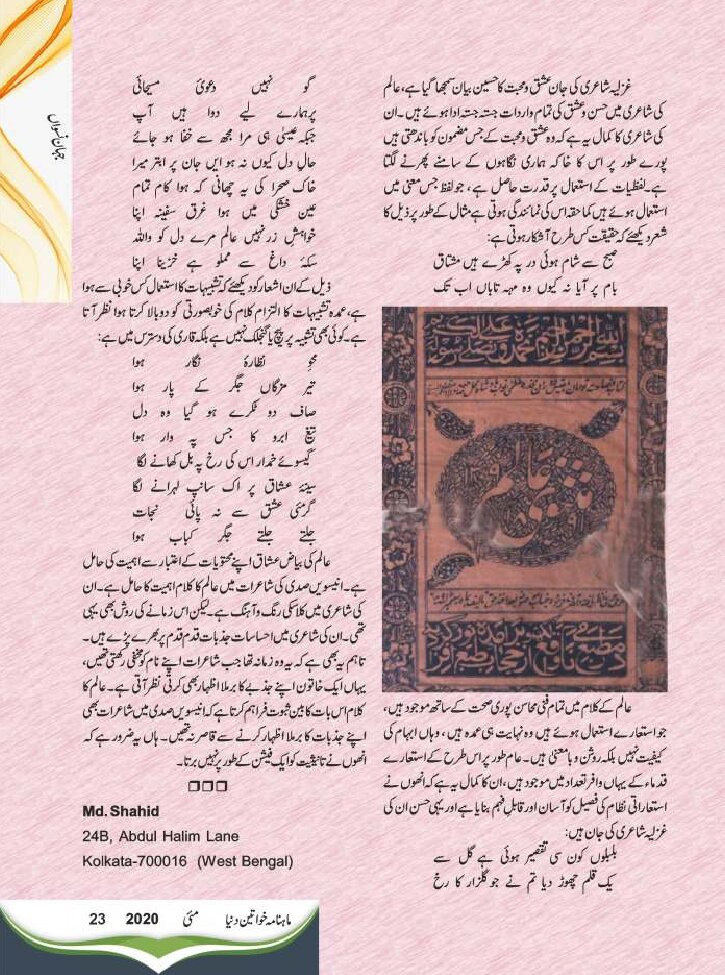 جہان نسواں
غزلیہ شاعری کی جان عشق و محبت کا حسین بیان سمجھا گیا ہے، عالم
کی شاعری میں حسن و عشق کی تمام واردات جستہ جستہ ادا ہوئے ہیں۔ ان
کی شاعری کا کمال یہ ہے کہ وہ عشق و محبت کے جس مضمون کو باندھتی ہیں
پورے طور پر اس کا خاکہ ہماری نگاہوں کے سامنے پھرنے لگتا
ہے۔ لفظیات کے استعمال پر قدرت حاصل ہے، جو لفظ جس معنی میں
استعمال ہوئے ہیں کماحقہ اس کی نمائندگی ہوتی ہے مثال کے طور پر ذیل کا
شعر دیکھئے کہ حقیقت کس طرح آشکار ہوتی ہے:
صبح سے شام ہوئی در پہ کھڑے ہیں مشتاق
بام پر آیا نہ کیوں وہ مہہ تاباں اب تک
بسم اللہ الرحمن الرحیم
عالم
عالم کے کلام میں تمام فنی محاسن پوری صحت کے ساتھ موجود ہیں،
جو استعارے استعمال ہوئے ہیں وہ نہایت ہی عمدہ ہیں، وہاں ابہام کی
کیفیت نہیں بلکہ روشن و بامعنی ہیں۔ عام طور پر اس طرح کے استعارے
قدماء کے یہاں وافر تعداد میں موجود ہیں، ان کا کمال یہ ہے کہ انھوں نے
استعاراتی نظام کی فصیل کو آسان اور قابلِ فہم بنایا ہے اور یہی حسن ان کی
غزلیہ شاعری کی جان ہیں:
بلبلوں کون سی تقصیر ہوئی ہے گل سے
یک قلم چھوڑ دیا تم نے جو گلزار کا رخ
گو نہیں دعویٰ مسیحائی
پر ہمارے لیے دوا ہیں آپ
جبکہ عیسیٰ ہی مرا مجھ سے خفا ہو جائے
حال دل کیوں نہ ہو ایں جان پر ابتر میرا
خاک صحرا کی یہ چھانی کہ ہوا کام تمام
عین خشکی میں ہوا غرق سفینہ اپنا
خواہشِ زر نہیں عالم مرے دل کو واللہ
سکۂ داغ سے مملو ہے خزینا اپنا
ذیل کے ان اشعار کو دیکھئے کہ تشبیہات کا استعمال کس خوبی سے ہوا
ہے، عمدہ تشبیہات کا التزام کلام کی خوبصورتی کو دوبالا کرتا ہوا نظر آتا
ہے۔ کوئی بھی تشبیہ پر پیچ یا گنجلک نہیں ہے بلکہ قاری کی دسترس میں ہے:
محوِ نظارۂ نگار ہوا
تیر مژگاں جگر کے پار ہوا
صاف دو ٹکرے ہو گیا وہ دل
تیغ ابرو کا جس پہ وار ہوا
گیسوئے خمدار اس کی رخ پہ بل کھانے لگا
سینۂ عشاق پر اک سانپ لہرانے لگا
گرمئی عشق سے نہ پائی نجات
جلتے جلتے جگر کباب ہوا
عالم کی بیاض عشاق اپنے محتویات کے اعتبار سے اہمیت کی حامل
ہے۔ انیسویں صدی کی شاعرات میں عالم کا کلام اہمیت کا حامل ہے۔ ان
کی شاعری میں کلاسکی رنگ و آہنگ ہے۔ لیکن اس زمانے کی روش بھی یہی
تھی۔ ان کی شاعری میں احساسات جذبات قدم قدم پر بھرے پڑے ہیں۔
تاہم یہ بھی ہے کہ یہ وہ زمانہ تھا جب شاعرات اپنے نام کو مخفی رکھتی تھیں،
یہاں ایک خاتون اپنے جذبے کا برملا اظہار بھی کرتی نظر آتی ہے۔ عالم کا
کلام اس بات کا بین ثبوت فراہم کرتا ہے کہ انیسویں صدی میں شاعرات بھی
اپنے جذبات کا برملا اظہار کرنے سے قاصر نہ تھیں۔ ہاں یہ ضرور ہے کہ
انھوں نے تانیثیت کو ایک فیشن کے طور پر نہیں برتا۔
Md. Shahid
24B, Abdul Halim Lane
Kolkata-700016 (West Bengal)
ماہنامہ خواتین دنیا مئی 2020 23